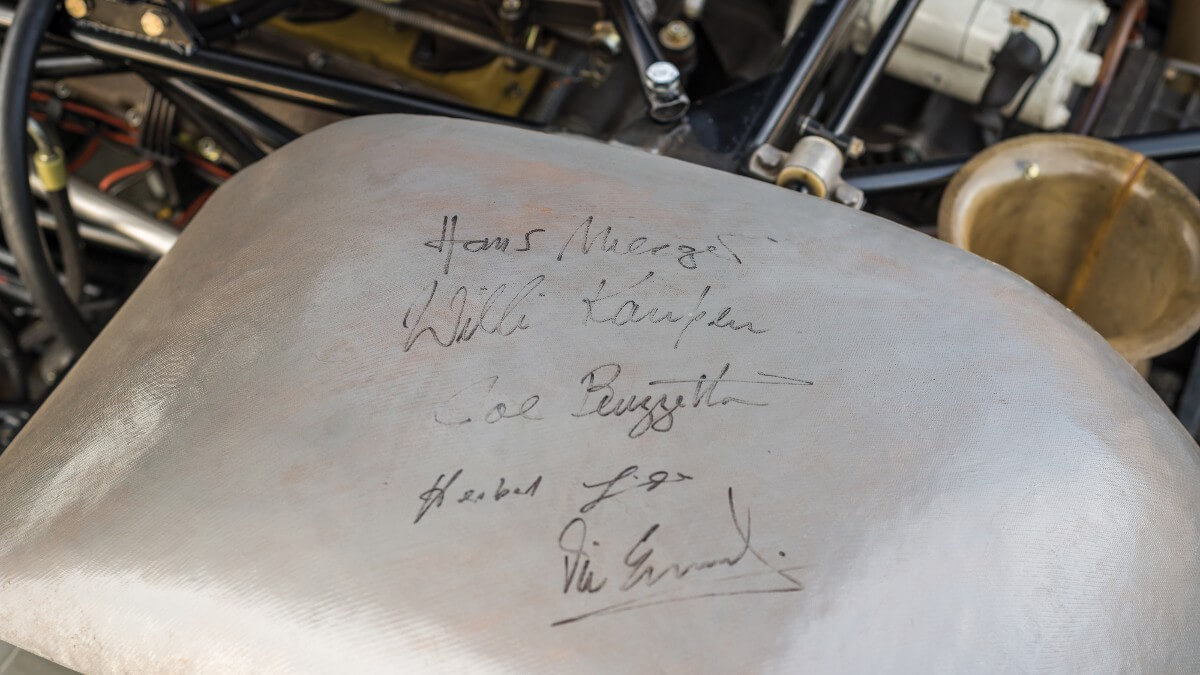 Hans Mezger
Willi Kauhsen
Joe Buzzetta
Herbert Linge
Vic Elford